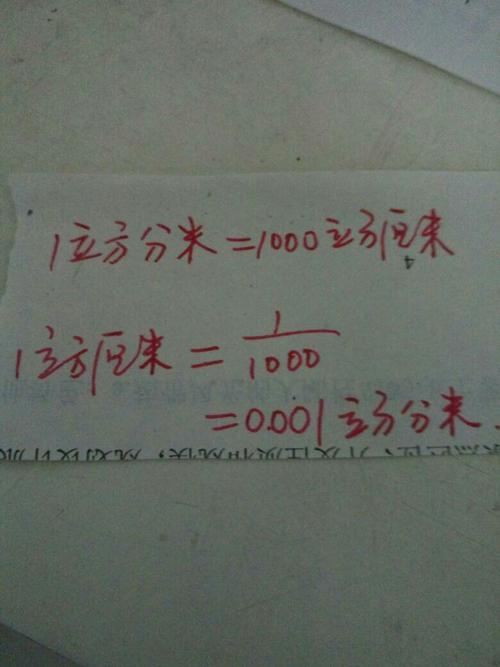 1立方分米=1000立方厘米
1立方厘米=1/1000
=0.001立方分米.